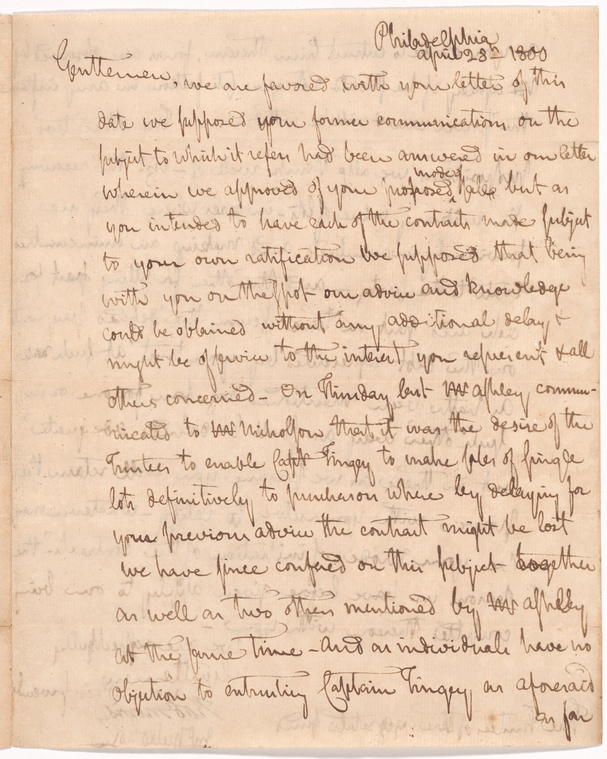 Philadelphia
april 28th 1800
Gentlemen, we are favored with your letter of this
date we supposed your former communications on the
subject to which it refers had been answered in our letter
wherein we approved of your proposed modes sales but as
you intended to have each of the contracts made subject
to your own ratification We supposed that being
with you on the spot our advice and knowledge
could be obtained without any additional delay &
might be of service to the interest you represent & all
others concerned – On Thursday last Mr Ashley commun-
nicated to Mr Nicholson that it was the desire of the
Trustees to enable Captn Tingey to make sales of single
lots definitively to purchasors where by delaying for
your previous advice the contract might be lost
we have since confered on this subject together
as well as two others mentioned by Mr Ashley
at the same time – and as individuals have no
objection to entrusting Captain Tingey as aforesaid
as far